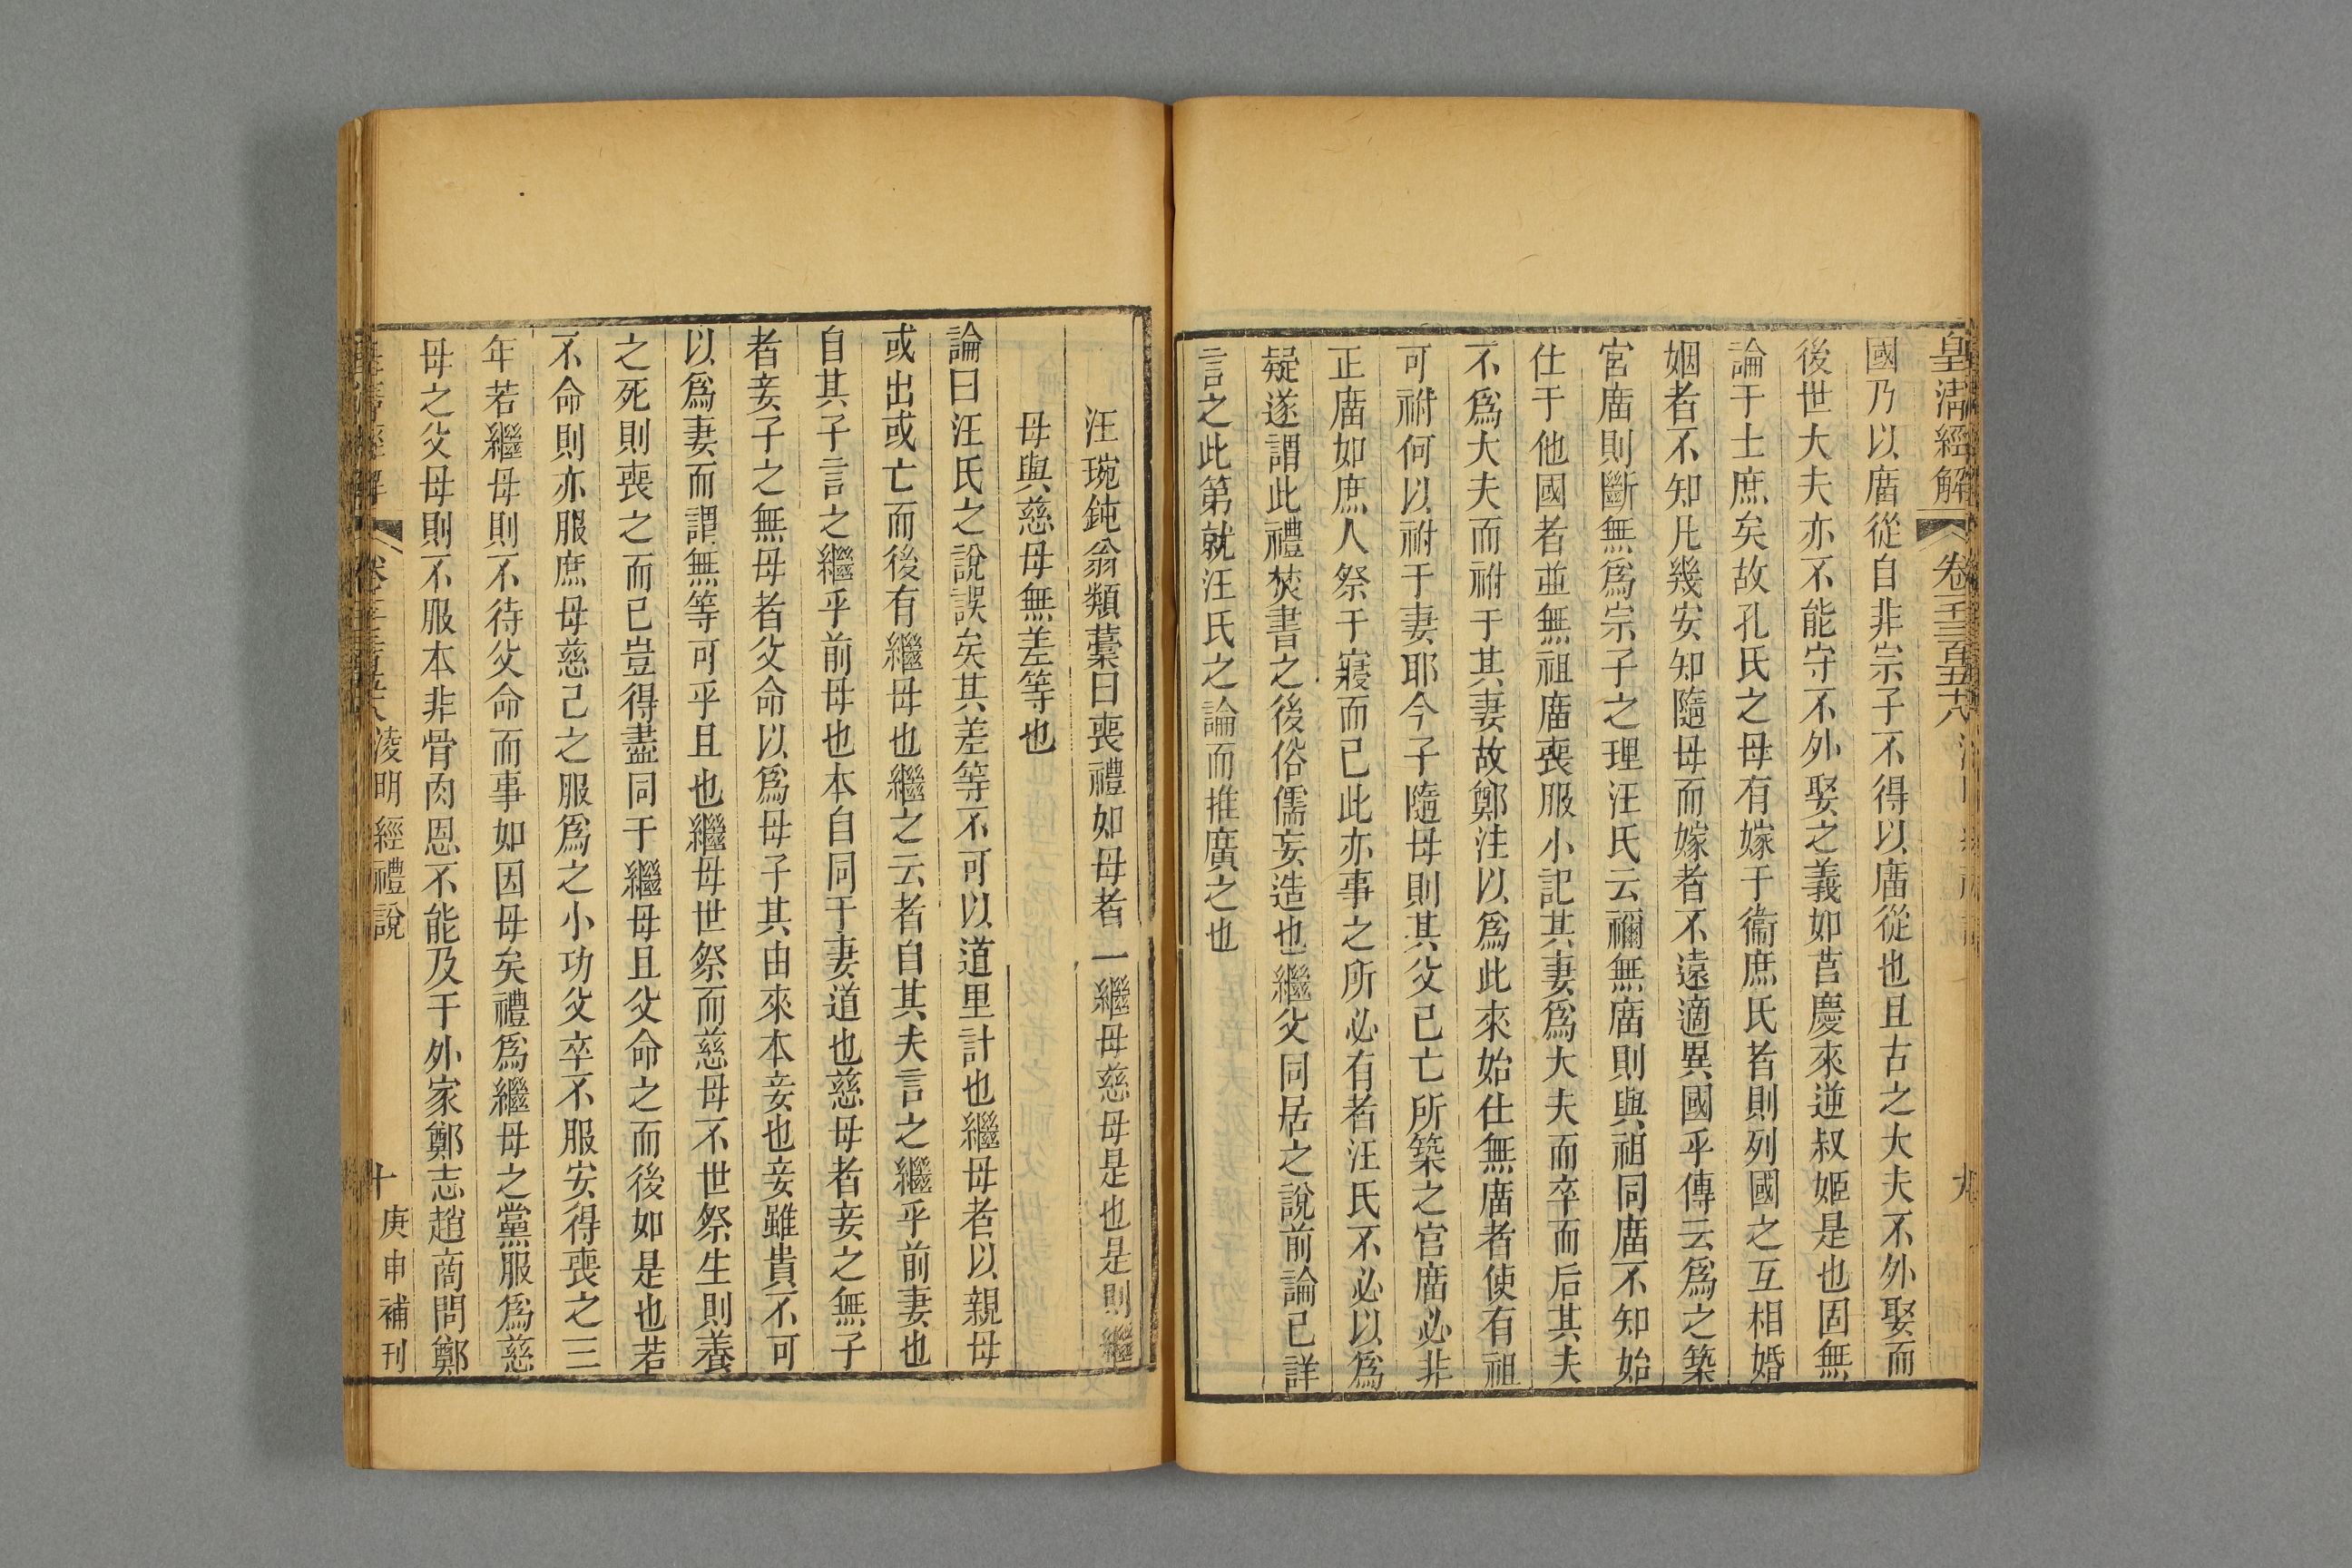 皇清經解
卷一千三百五十八
九
國乃以廟從自非宗子不得以廟從也且古之大夫不外娶而
後世大夫亦不能守不外娶之義如莒慶來逆叔姬是也固無
論于士庶矣故孔氏之母有嫁于衞庶氏者則列國之互相婚
姻者不知凡幾安知隨母而嫁者不遠適異國乎傳云爲之築
宮廟則斷無爲宗子之理汪氏云禰無廟則與祖同廟不知始
仕于他國者並無祖廟喪服小記其妻爲大夫而卒而后其夫
不爲大夫而祔于其妻故鄭注以爲此來始仕無廟者使有祖
可祔何以祔于妻耶今子隨母則其父已亡所築之宮廟必非
正廟如庶人祭于寢而已此亦事之所必有者汪氏不必以爲
疑遂謂此禮焚書之後俗儒妄造也繼父同居之說前論已詳
言之此第就汪氏之論而推廣之也
汪琬鈍翁類藁曰喪禮如母者一繼母慈母是也是則繼
母與慈母無差等也
論曰汪氏之說誤矣其差等不可以道里計也繼母者以親母
或出或亡而後有繼母也繼之云者自其夫言之繼乎前妻也
自其子言之繼乎前母也本自同于妻道也慈母者妾之無子
者妾子之無母者父命以爲母子其由來本妾也妾雖貴不可
以爲妻而謂無等可乎且也繼母世祭而慈母不世祭生則養
之死則喪之而已豈得盡同于繼母且父命之而後如是也若
不命則亦服庶母慈己之服爲之小功父卒不服安得喪之三
年若繼母則不待父命而事如因母矣禮爲繼母之黨服爲慈
母之父母則不服本非骨肉恩不能及于外家鄭志趙商問鄭
凌明經禮說
十
庚申補刊